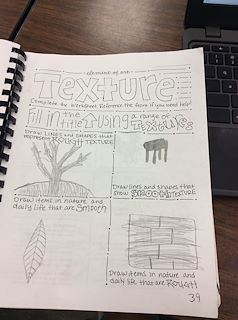 element of art
Texture
Complete the Worksheet. Reference the form if you need help!
Fill in
the title ↑ using a range of
TEXTURES
Draw LINES and SHAPES that
represent ROUGH TEXTURE
Draw lines and shapes that
show SMOOTH TEXTURE
Draw items in nature and
daily life that are SMOOTH
Draw items in nature and
daily life that are ROUGH
39